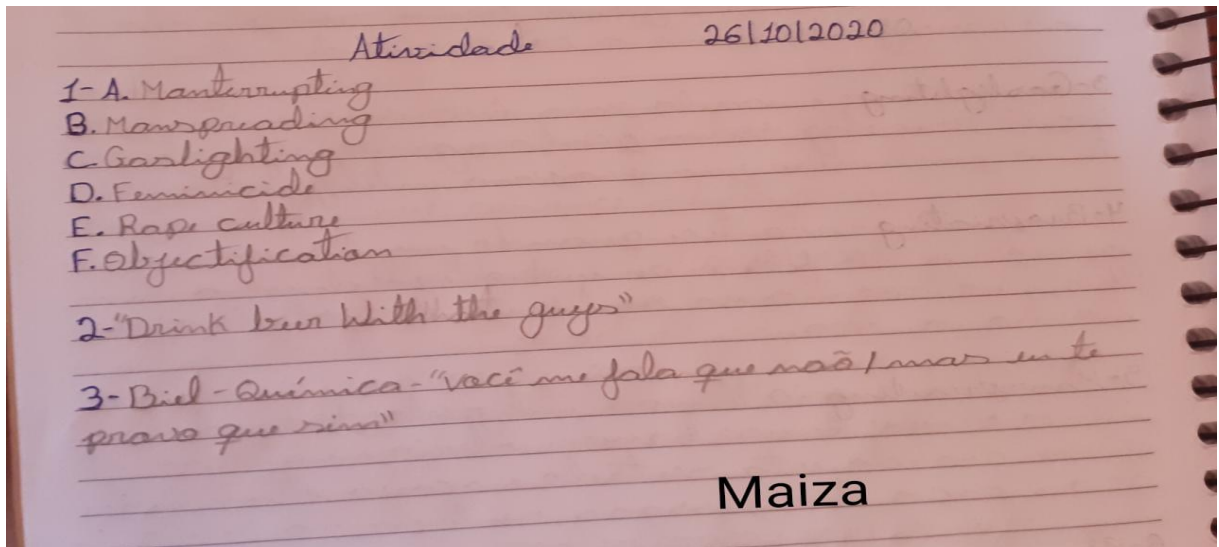 Atividade 26/10/2020
1-A. Manterrupting
B. Manspreading
C. Gaslighting
D. Feminicide
E. Rape culture
F. Objectification
2-"Drink beer With the guys"
3-Biel-Química-"Você me fala que naõ/mas eu te
provo que sim"
Maiza